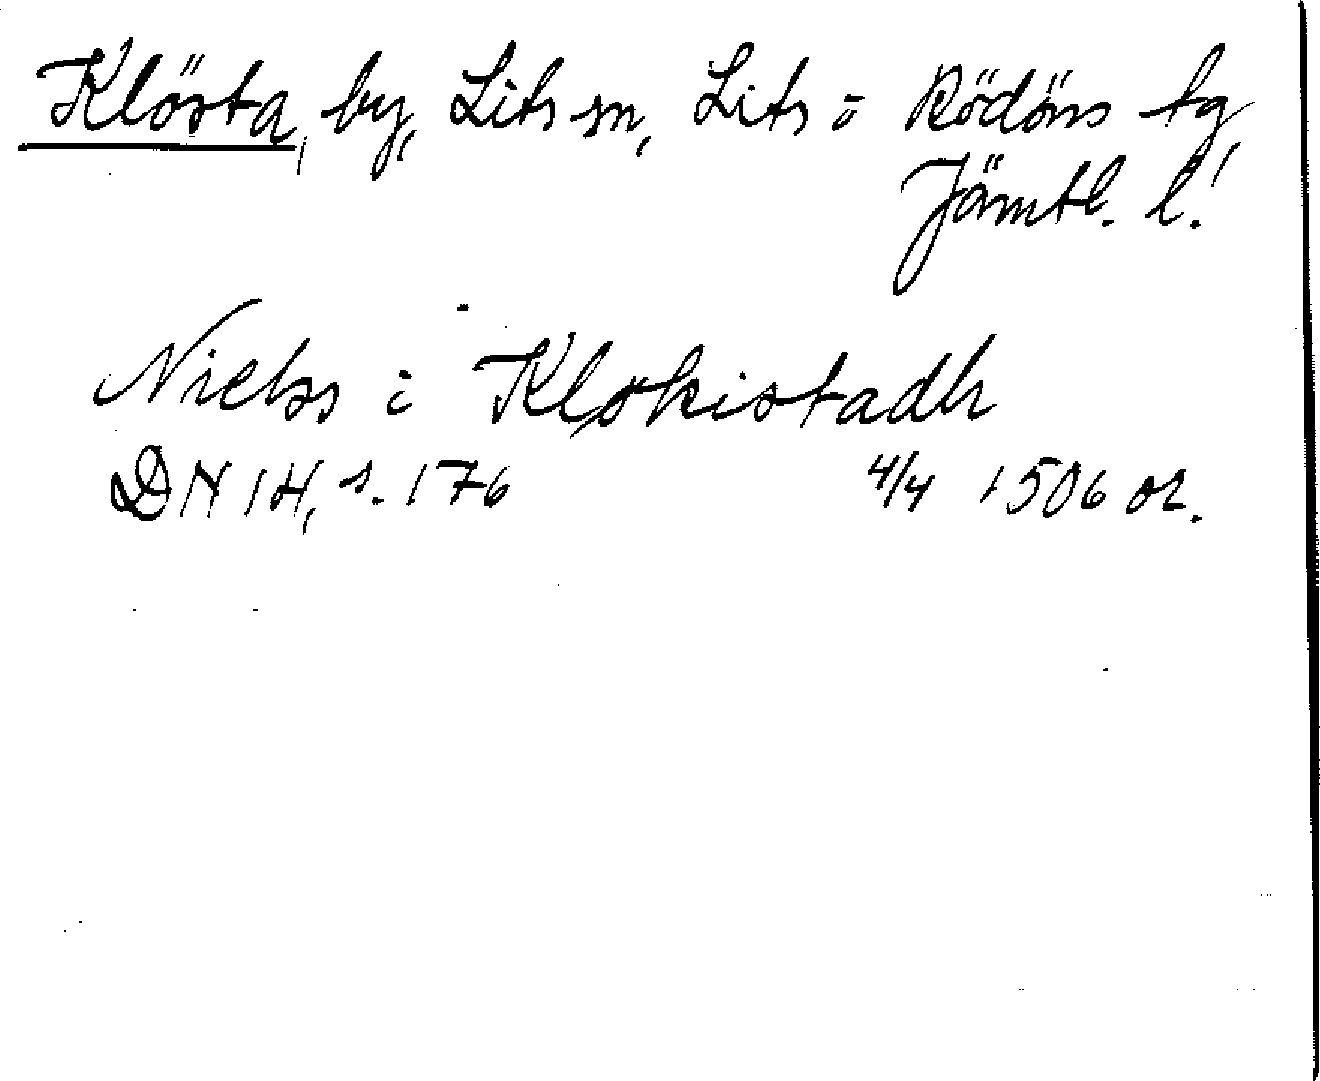 Klösta, by, Lits sn, Lits o Rödöns tg,
Jämtl. l.
Nielss i Kløkistadh
DN 14, s. 176 4/4 1506 or.